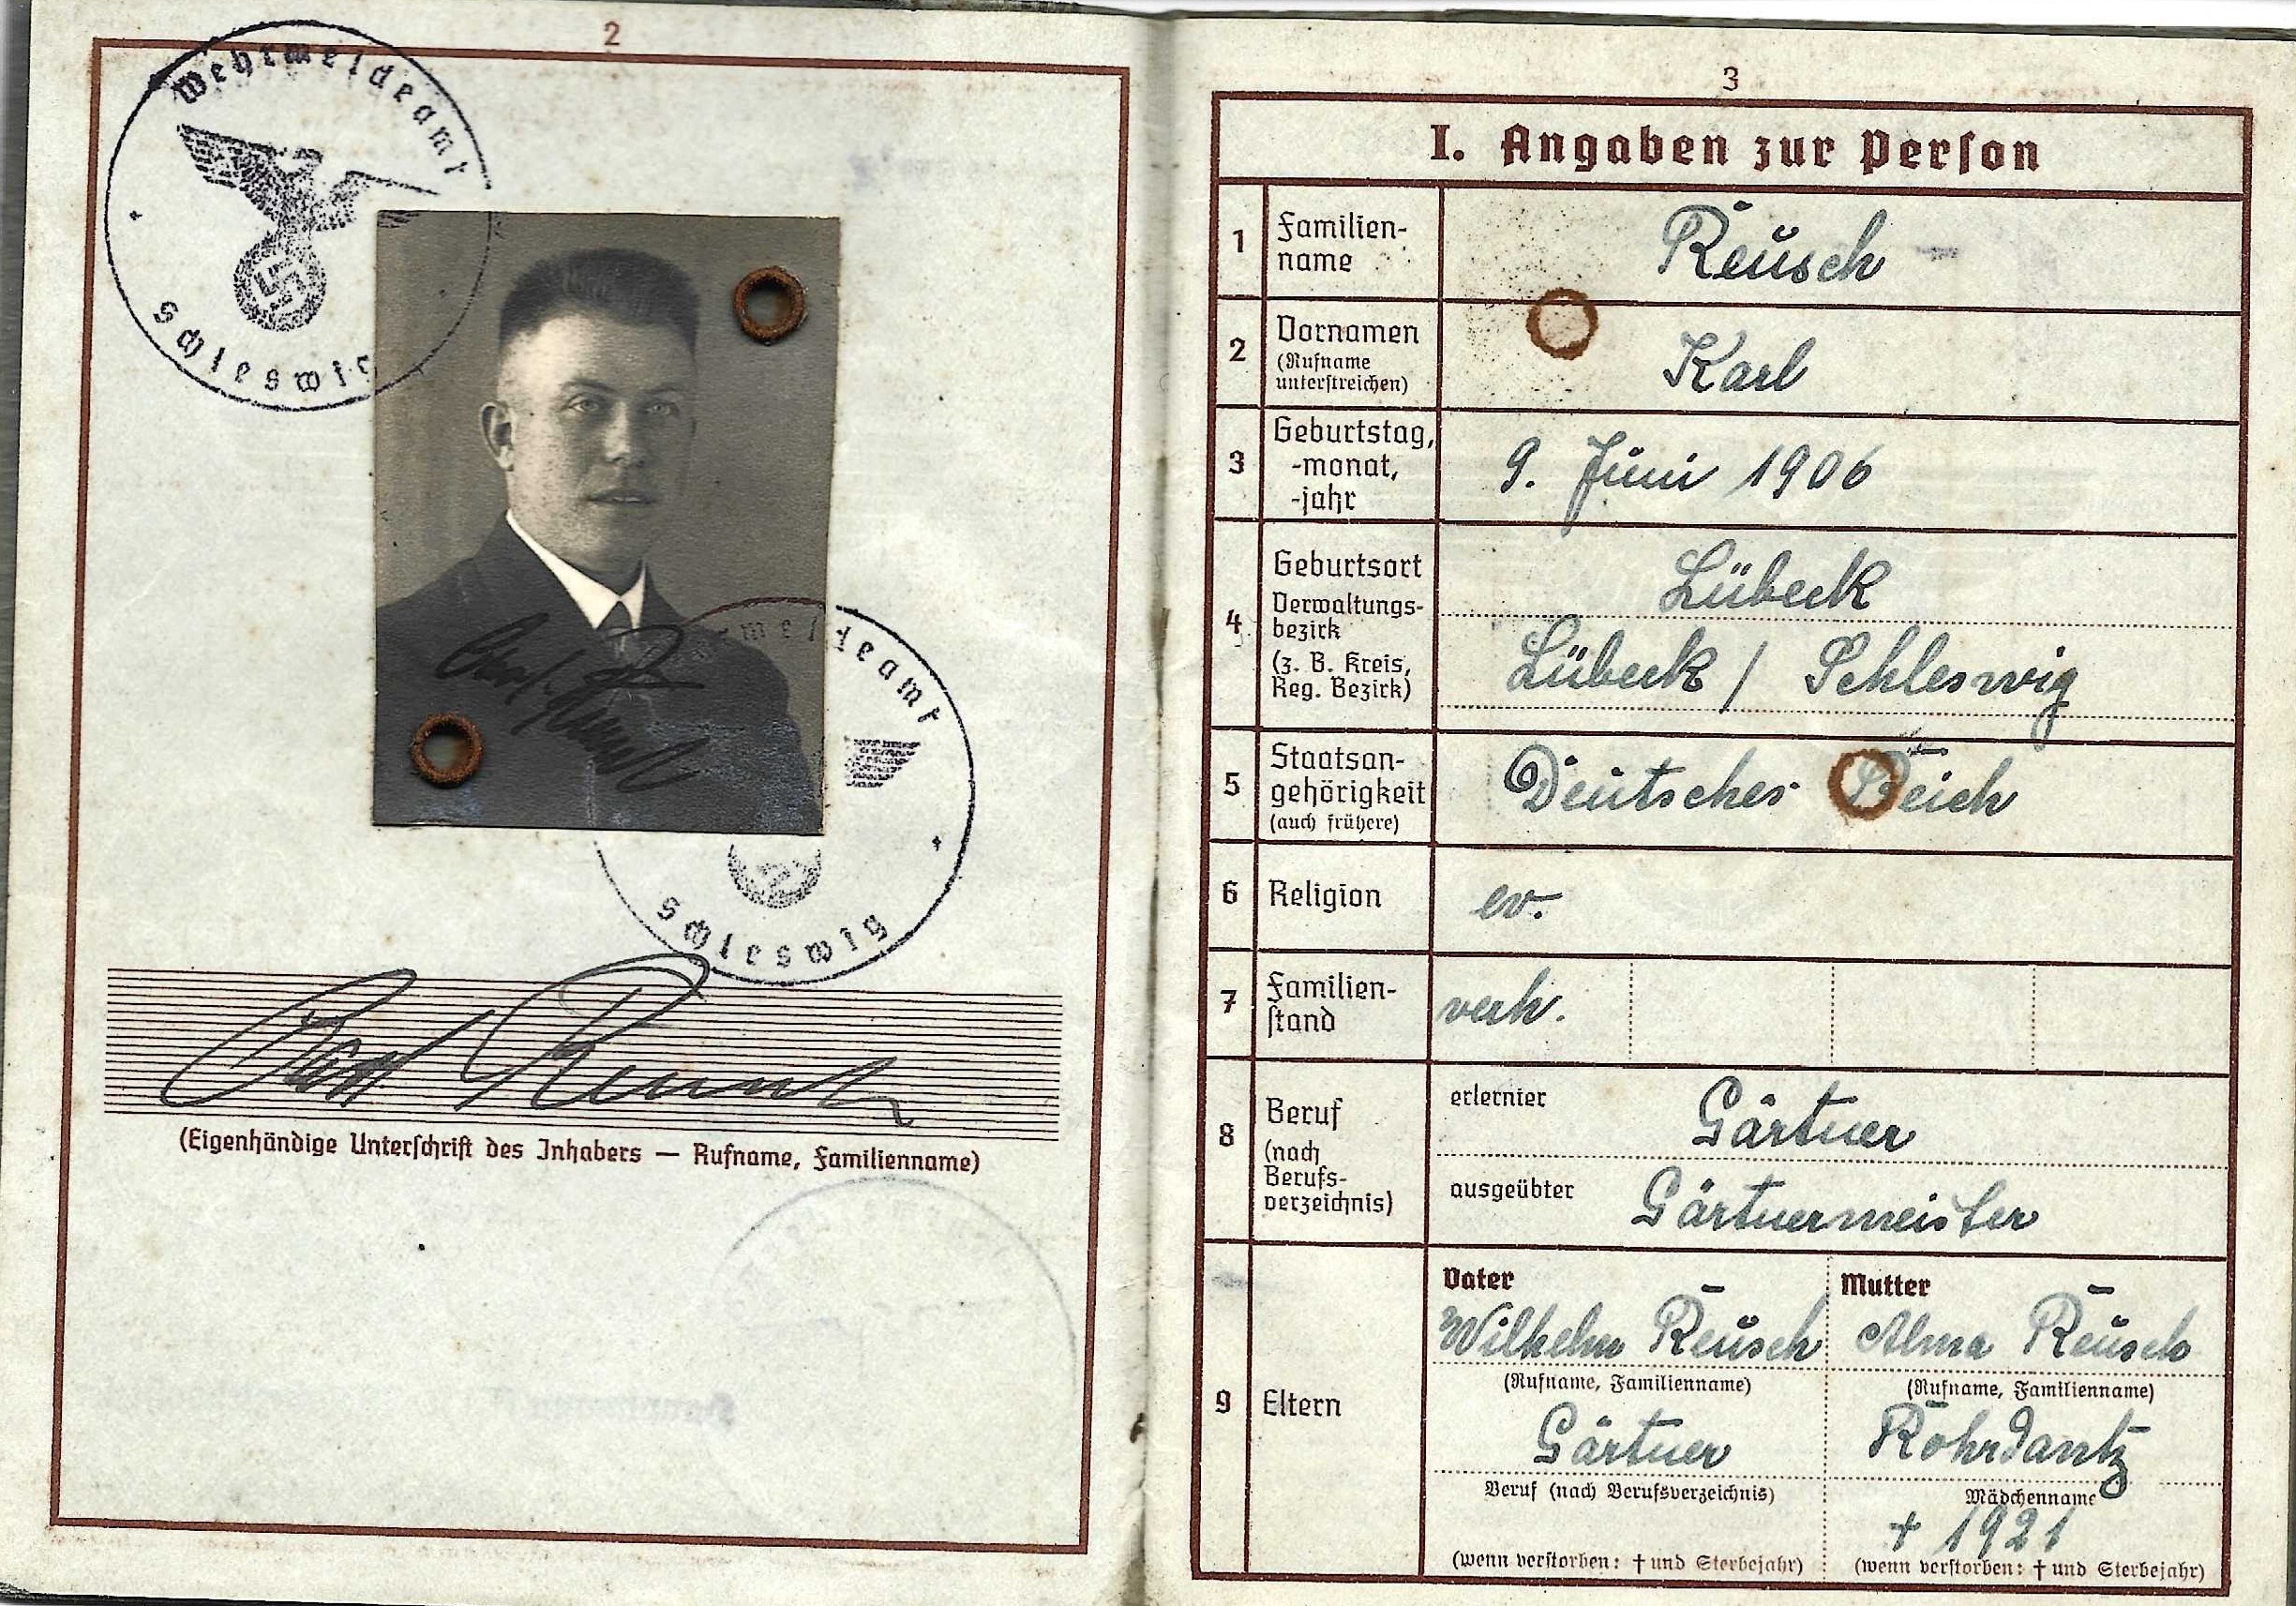 2
Wehrmeldeamt
Schleswig
Wehrmeldeamt
Schleswig
Karl Reusch
(Eigenhändige Unterschrift des Inhabers — Rufname, Familienname)
3
I. Angaben zur Person
1 Familien-
name
Reusch
2 Vornamen
(Rufname
unterstreichen)
Karl
3 Geburtstag,
-monat,
-jahr
9. Juni 1906
4 Geburtsort
Verwaltungs-
bezirk
(z. B. Kreis,
Reg. Bezirk)
Lübeck
Lübeck / Schleswig
5 Staatsan-
gehörigkeit
(auch frühere)
Deutsches Reich
6 Religion
ev.
7 Familien-
stand
verh.
8 Beruf
(nach
Berufs-
verzeichnis)
erlernter Gärtner
ausgeübter Gärtnermeister
9 Eltern
Vater
Wilhelm Reusch
(Rufname, Familienname)
Gärtner
Beruf (nach Berufsverzeichnis)
(wenn verstorben: † und Sterbejahr)
Mutter
Alma Reusch
(Rufname, Familienname)
Rohrdantz
Mädchenname
† 1921
(wenn verstorben: † und Sterbejahr)